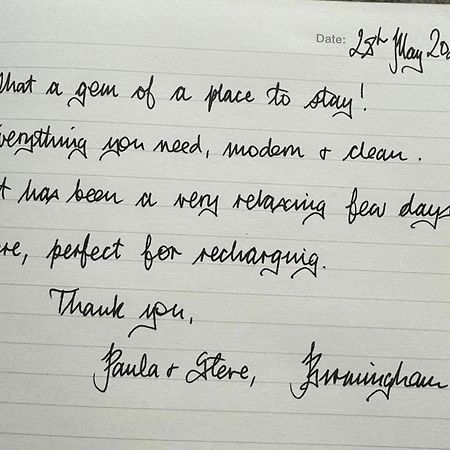 Date: 28th May 20
What a gem of a place to stay!
verything you need, modern + clean.
t has been a very relaxing few days
re, perfect for recharging.
Thank you,
Paula + Steve, Birmingham